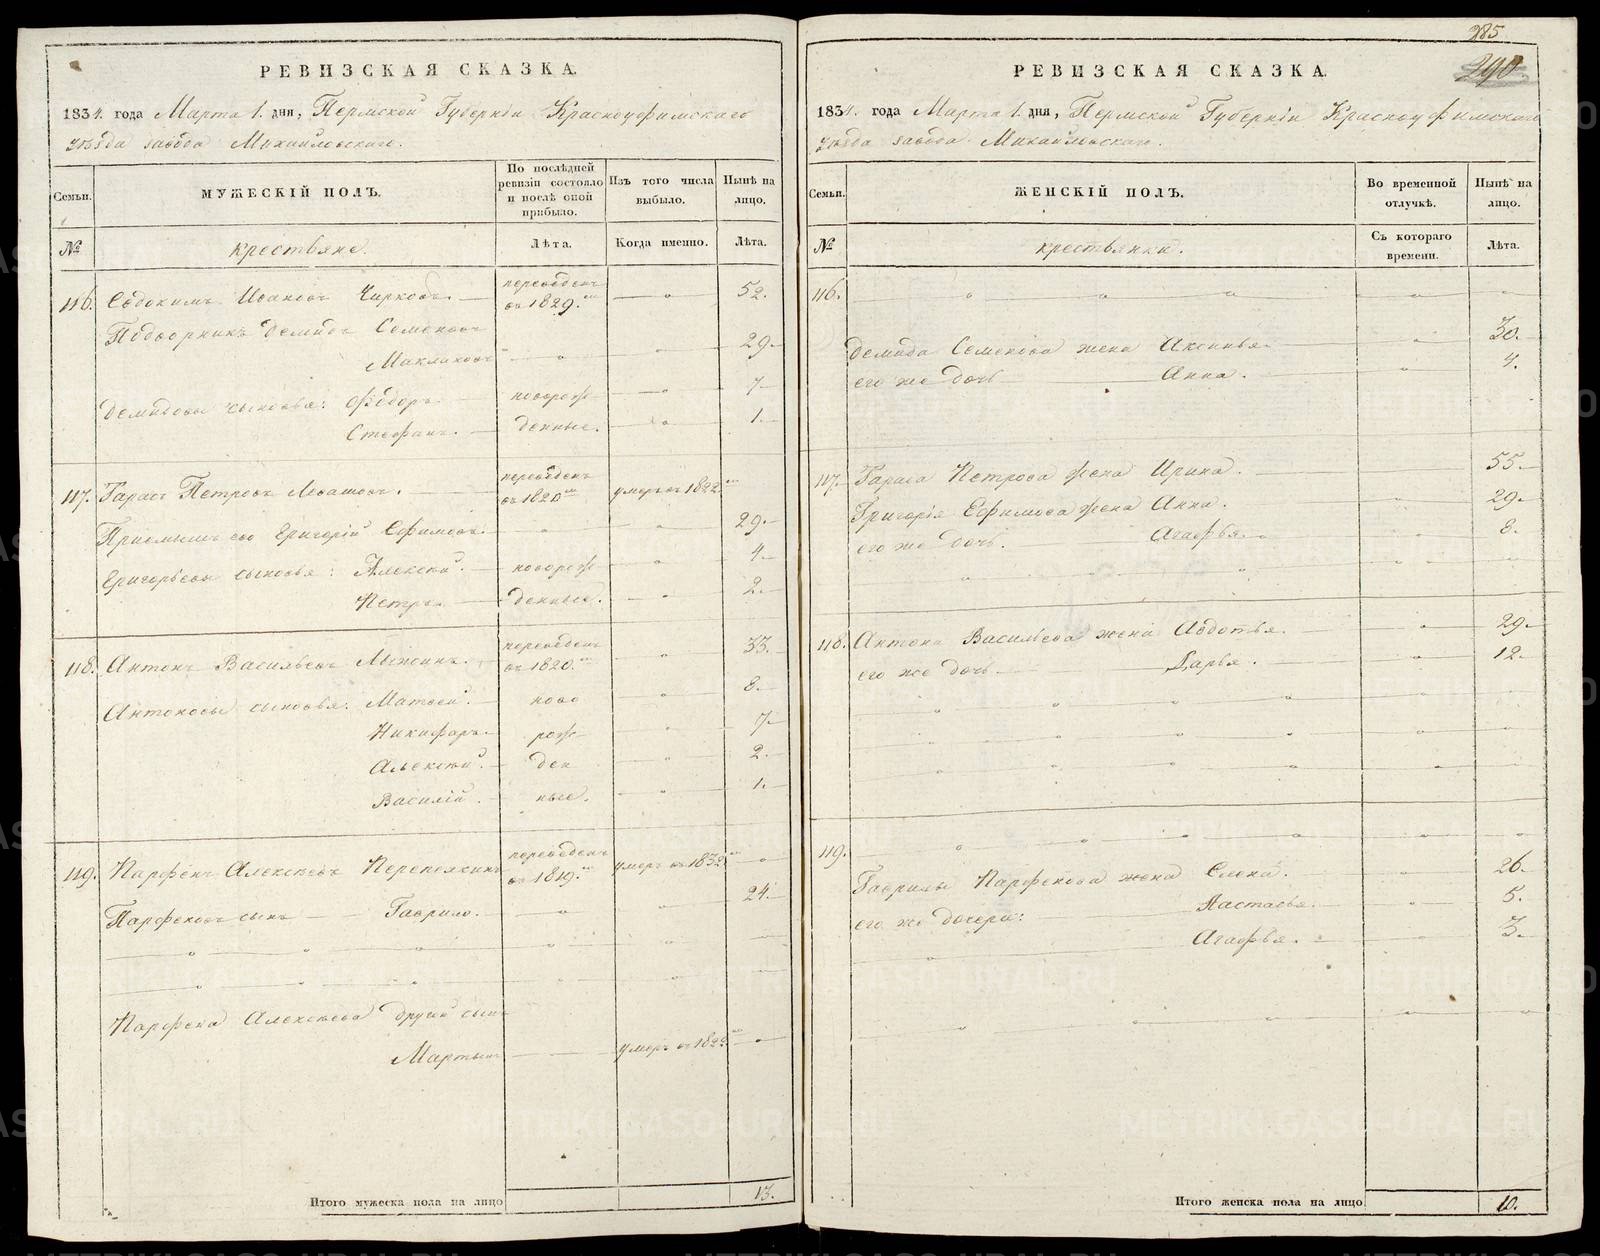 РЕВИЗСКАЯ СКАЗКА.
1834. года Марта 1. дня, Пермской Губерніи Красноуфимскаго
уѣзда завода Михайловскаго.
Семьи.
МУЖЕСКІЙ ПОЛЪ.
По послѣдней ревизіи состояло и послѣ оной прибыло.
Изъ того числа выбыло.
Нынѣ на лицо.
№
крестьяне.
Лѣта.
Когда именно.
Лѣта.
116. Евдокимъ Ивановъ Чирковъ. переведенъ въ 1829.мъ 52.
Подворникъ Демидъ Семеновъ
29.
Демидовы сыновья: Ѳедоръ. новорож 7
Стефанъ. денные. 1.
117. Тарасъ Петровъ переведенъ въ 1820мъ умеръ въ 1822.мъ
Пріемышъ его Григорій Ефимовъ. 29.
Григорьевы сыновья: Алексѣй. новорож 4
Петръ. денные. 2.
118. Антонъ Васильевъ переведенъ въ 1820.мъ 33.
Антоновы сыновья: Матвей. ново 8.
Никифоръ. рож 7.
Алексѣй. ден 2.
Василій. ные. 1.
119. Парфенъ Алексѣевъ переведенъ въ 1819.мъ умеръ въ 1832.мъ
Парфеновъ сынъ Гаврило. 24.
Парфена Алексѣева другой сынъ
Мартынъ умеръ въ
Итого мужеска пола на лицо 13.
285
290
РЕВИЗСКАЯ СКАЗКА.
1834. года Марта 1. дня, Пермской Губерніи Красноуфимскаго
уѣзда завода Михайловскаго.
Семьи.
ЖЕНСКІЙ ПОЛЪ.
Во временной отлучкѣ.
Нынѣ на лицо.
№
крестьянки.
Съ котораго времени.
Лѣта.
116.
Демида Семенова жена Аксинья. 30.
его же дочь Анна. 4.
117. Тараса Петрова жена Ирина. 55.
Григорія Ефимова жена Анна. 29.
его же дочь. Агафья. 8.
118. Антона Васильева жена Авдотья. 29.
его же дочь Дарья. 12.
119.
Гаврилы Парфенова жена Елена. 26.
его же дочери: Настасья. 5.
Агафья. 3.
Итого женска пола на лицо 10.
METRIKI.GASO-URAL.RU